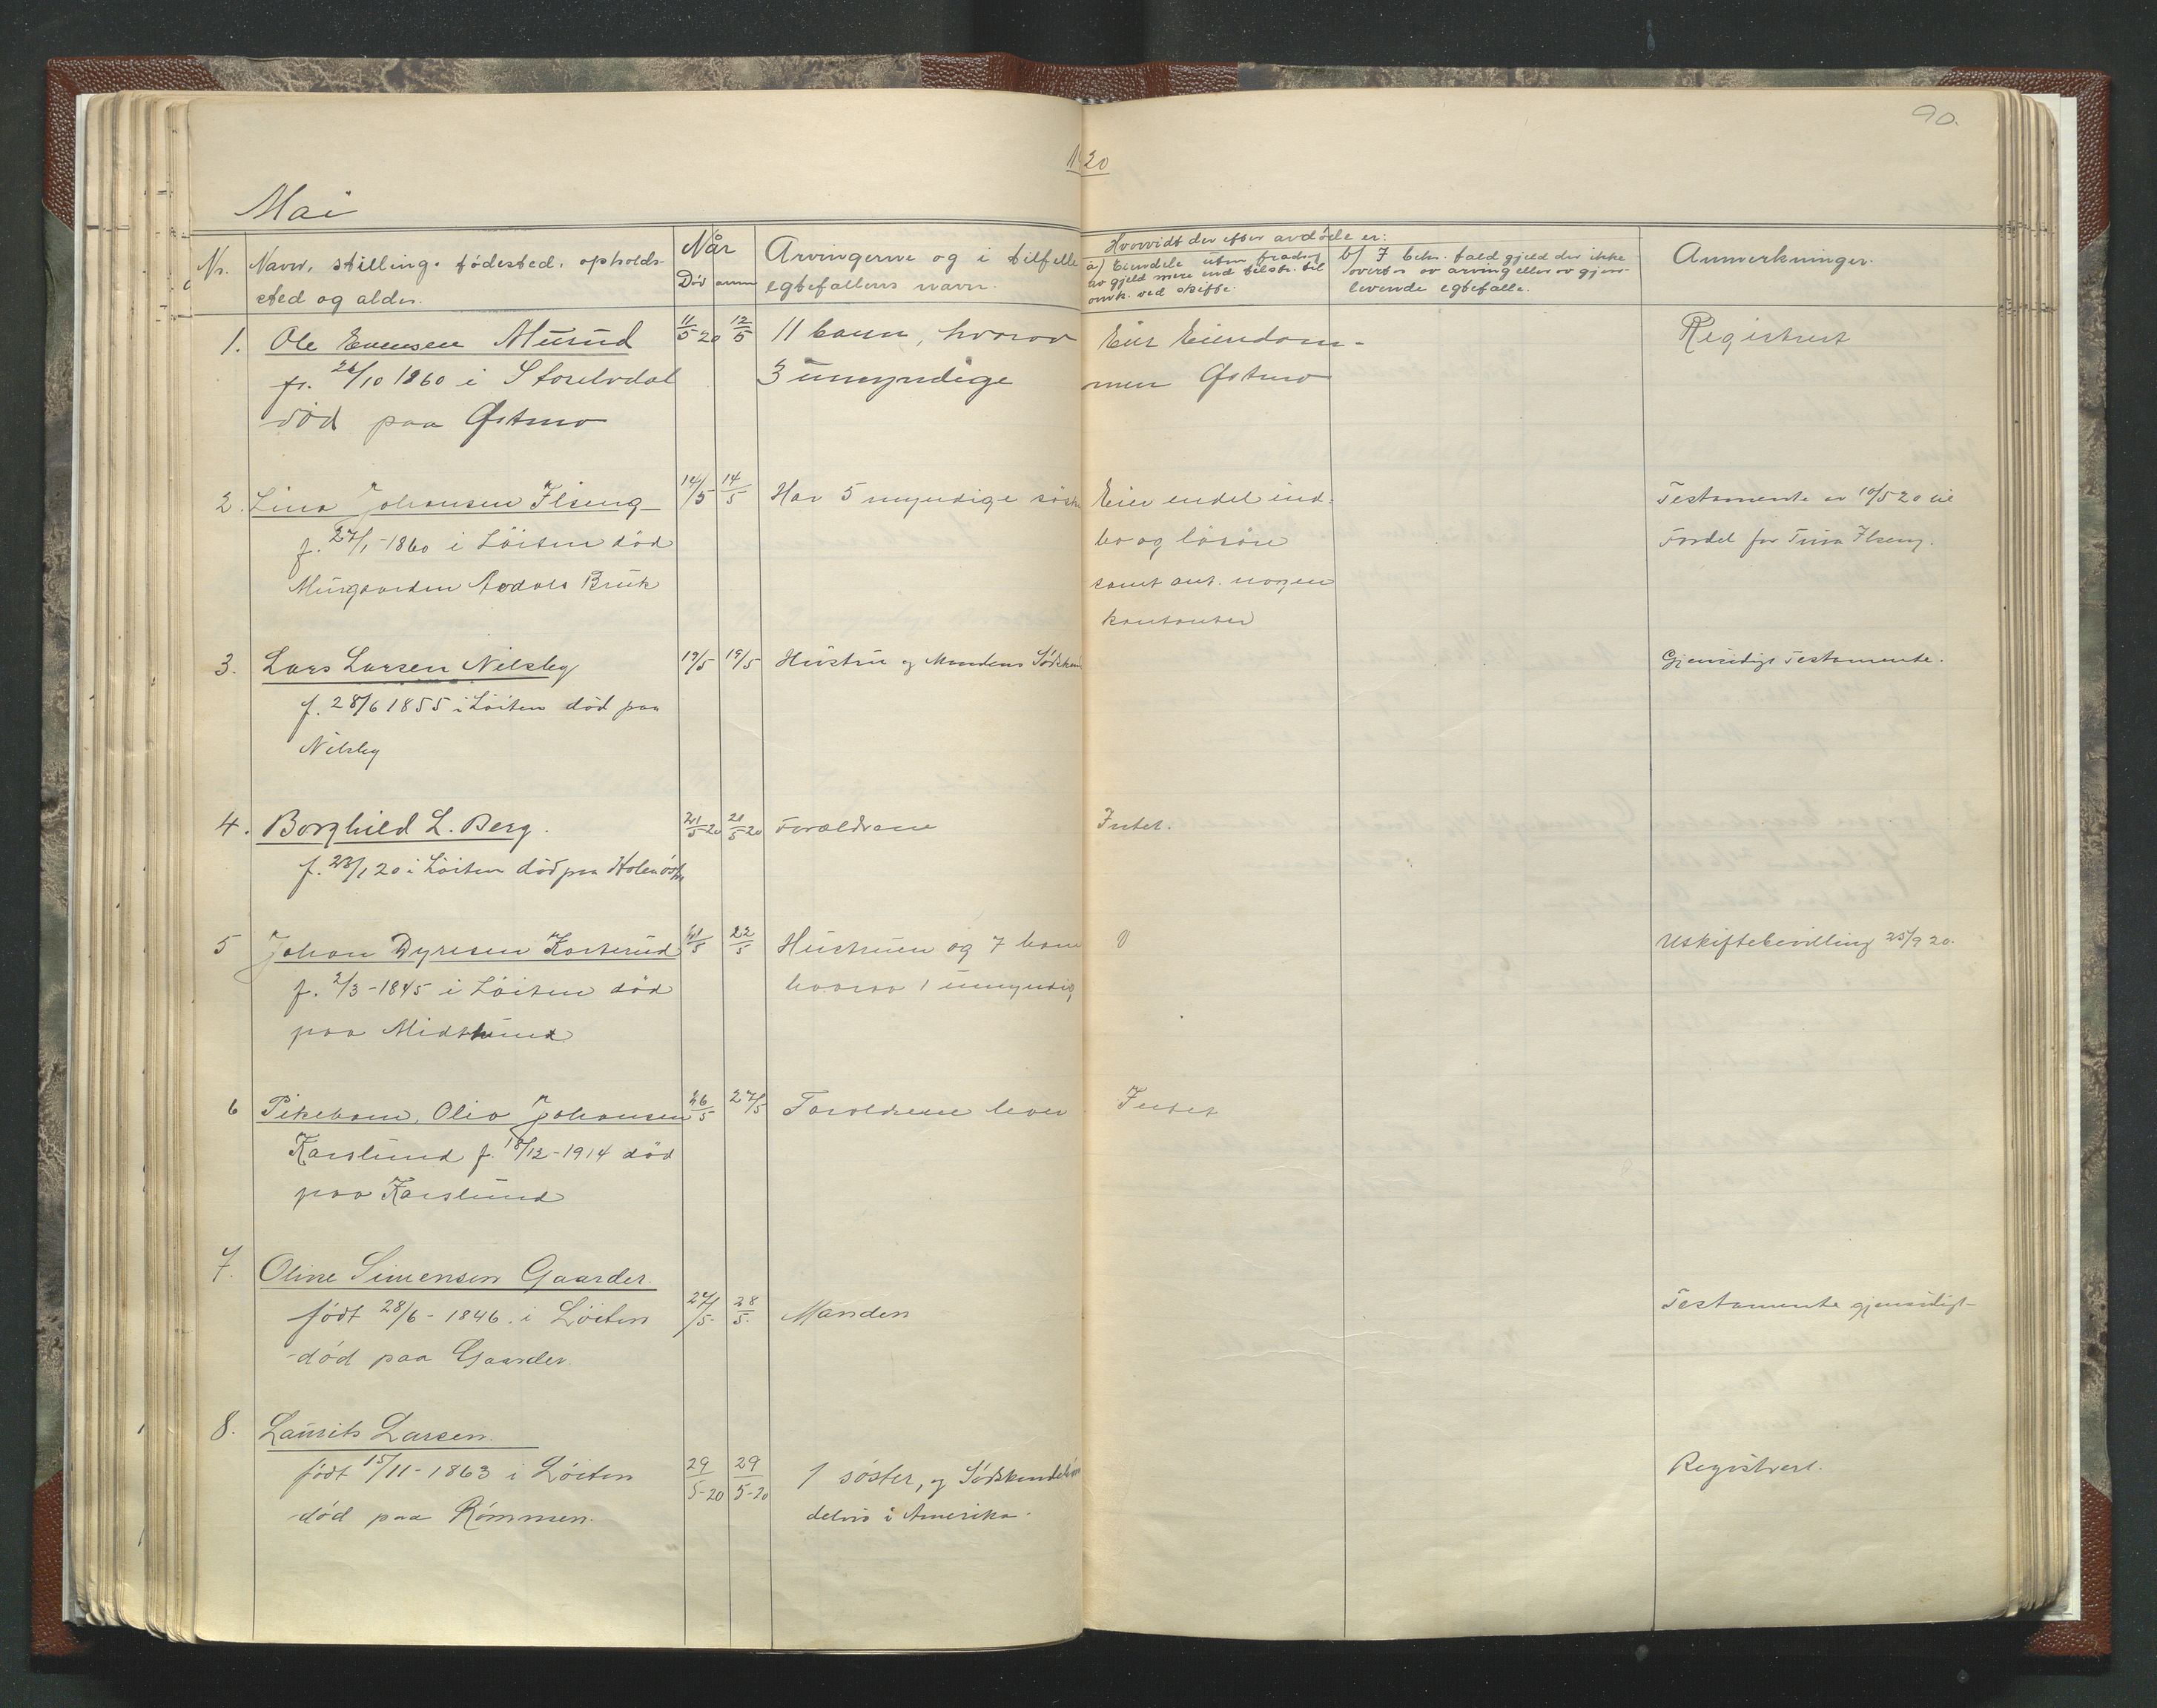 90.
1920
Mai
Nr.
Navn, stilling, fødested, opholds-
sted og alder.
Når
Død
anm
Arvingerne og i tilfelle
egtefællens navn.
Hvorvidt der efter avdøde er:
a) Eiendele uten fradrag
av gjeld mere end tilstr. til
omk. ved skifte.
b) I bekr. fald gjeld der ikke
overt. av arving eller av gjen-
levende egtefælle.
Anmerkninger.
1. Ole Evensen Murud 11/5 20 12/5 11 barn, hvorav Eier Eiendom- Registrert
f. 26/10 1860 i Storelvdal 3 umyndige men Østmo
død paa Østmo
2. Lina Johansen Ilseng 14/5 14/5 Har 5 myndige Eier endel ind- Testamente av 10/5 20 til
f. 27/1-1860 i Löiten död bo og lösöre Fordel for Ilseng.
Murgaarden Aadals Bruk samt ant. nogen
kontanter
3. Lars Larsen Nilsby 19/5 19/5 Hustru og Mandens Gjensidigt Testamente.
f. 28/6 1855 i Löiten död paa
Nilsby
4. Borghild L. Berg. 21/5-20 21/5-20 Forældrene Intet.
f. 23/1 20 i Löiten död paa
5 Johan Dyresen Korterud 21/5 22/5 Hustruen og 7 barn 0 Uskiftebevilling 25/9 20.
f. 2/3-1845 i Löiten död hvorav 1 umyndig
paa
6 Pikebarn, Oliv Johansen 26/5 27/5 Foreldrene lever Intet
Karslund f. 18/12-1914 död
paa Karslund
7. Oline Simensen Gaarder.
født 28/6-1846. i Löiten 27/5 28/5 Manden Testamente gjensidigt
død paa Gaarder.
8. Laurits Larsen.
født 15/11-1863 i Löiten 29/5-20 29/5-20 1 søster, og Registrert.
død paa Rømmen. delvis i Amerika.